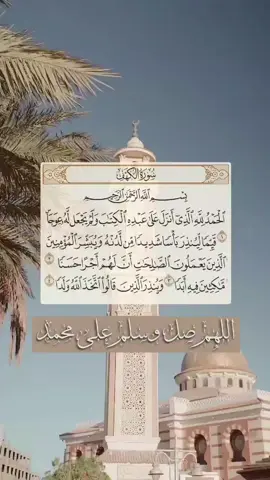 سورة الكهف
بسم الله الرحمن الرحيم
الحمد لله الذي أنزل على عبده الكتب ولم يجعل له عوجا
قيما لينذر بأسا شديدا من لدنه ويبشر المؤمنين
الذين يعملون الصلحت أن لهم أجرا حسنا
مكثين فيه أبدا وينذر الذين قالوا اتخذ الله ولدا
اللهم صل وسلم على محمد